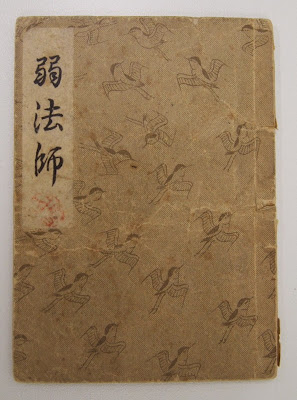 弱法師